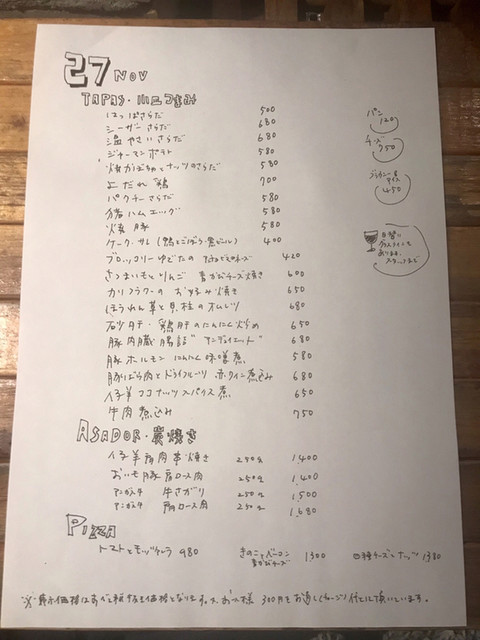 27 NOV
TAPAS・小皿つまみ
はっぱさらだ 500
シーザーさらだ 680
温やさいさらだ 680
ジャーマンポテト 580
焼かぼちゃとナッツのさらだ 580
よだれ鶏 700
パクチーさらだ 580
猪ハムエッグ 580
焼豚 580
ケーク・サレ(鴨とごぼう・黒ビール) 400
ブロッコリーゆでたの 460
さつまいもとりんご 青かびチーズ焼き 600
カリフラワーの お好み焼き 650
ほうれん草と貝柱のオムレツ 680
砂肝・鶏肝のにんにく炒め 650
豚内臓腸詰"アンデュイエット" 680
豚ホルモン にんにく味噌煮 580
豚ばら肉とドライフルーツ 赤ワイン煮込み 680
仔羊ココナッツスパイス煮 650
牛肉煮込み 750
ASADOR・炭焼き
仔羊肩肉串焼き 250g 1,400
おいも豚肩ロース肉 250g 1,400
アンガス牛 牛さがり 250g 1,500
アンガス牛 肩ロース肉 250g 1,680
PIZZA
トマトとモッツァレラ 980
きのことベーコン 青かびチーズ 1300
四種チーズとナッツ 1380
※表示価格はすべて税抜き価格となります。又、お一人様 300円をお通し(チャージ)代として頂いています。
パン 120
チーズ 750
ブラウニー&アイス 450
日替り
グラスワインも
あります。
スタッフまで